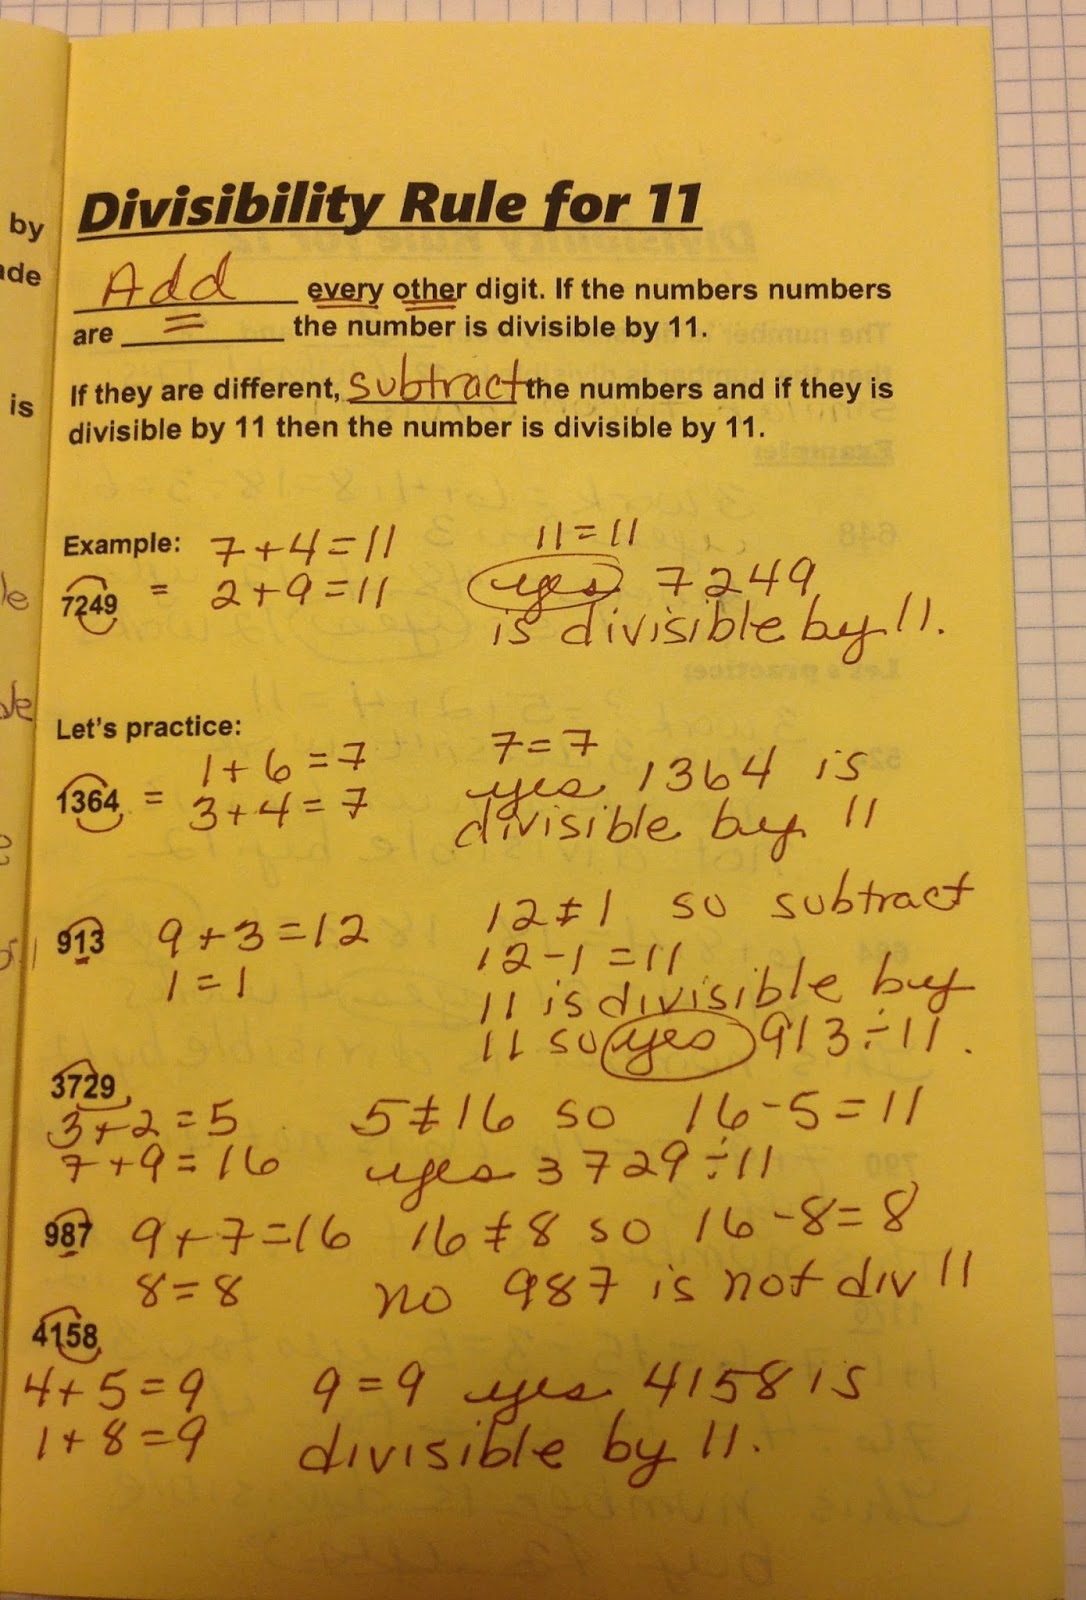 by
Divisibility Rule for 11
Add every other digit. If the numbers numbers
are = the number is divisible by 11.
is
If they are different, subtract the numbers and if they is
divisible by 11 then the number is divisible by 11.
Example: 7+4=11 11=11
7249 = 2+9=11 yes 7249
is divisible by 11.
Let's practice:
1+6=7 7=7
1364 = 3+4=7 yes 1364 is
divisible by 11
913 9+3=12 12≠1 so subtract
1=1 12-1=11
11 is divisible by
11 so yes 913÷11.
3729
3+2=5 5≠16 so 16-5=11
7+9=16 yes 3729÷11
987 9+7=16 16≠8 so 16-8=8
8=8 no 987 is not div 11
4158
4+5=9 9=9 yes 4158 is
1+8=9 divisible by 11.